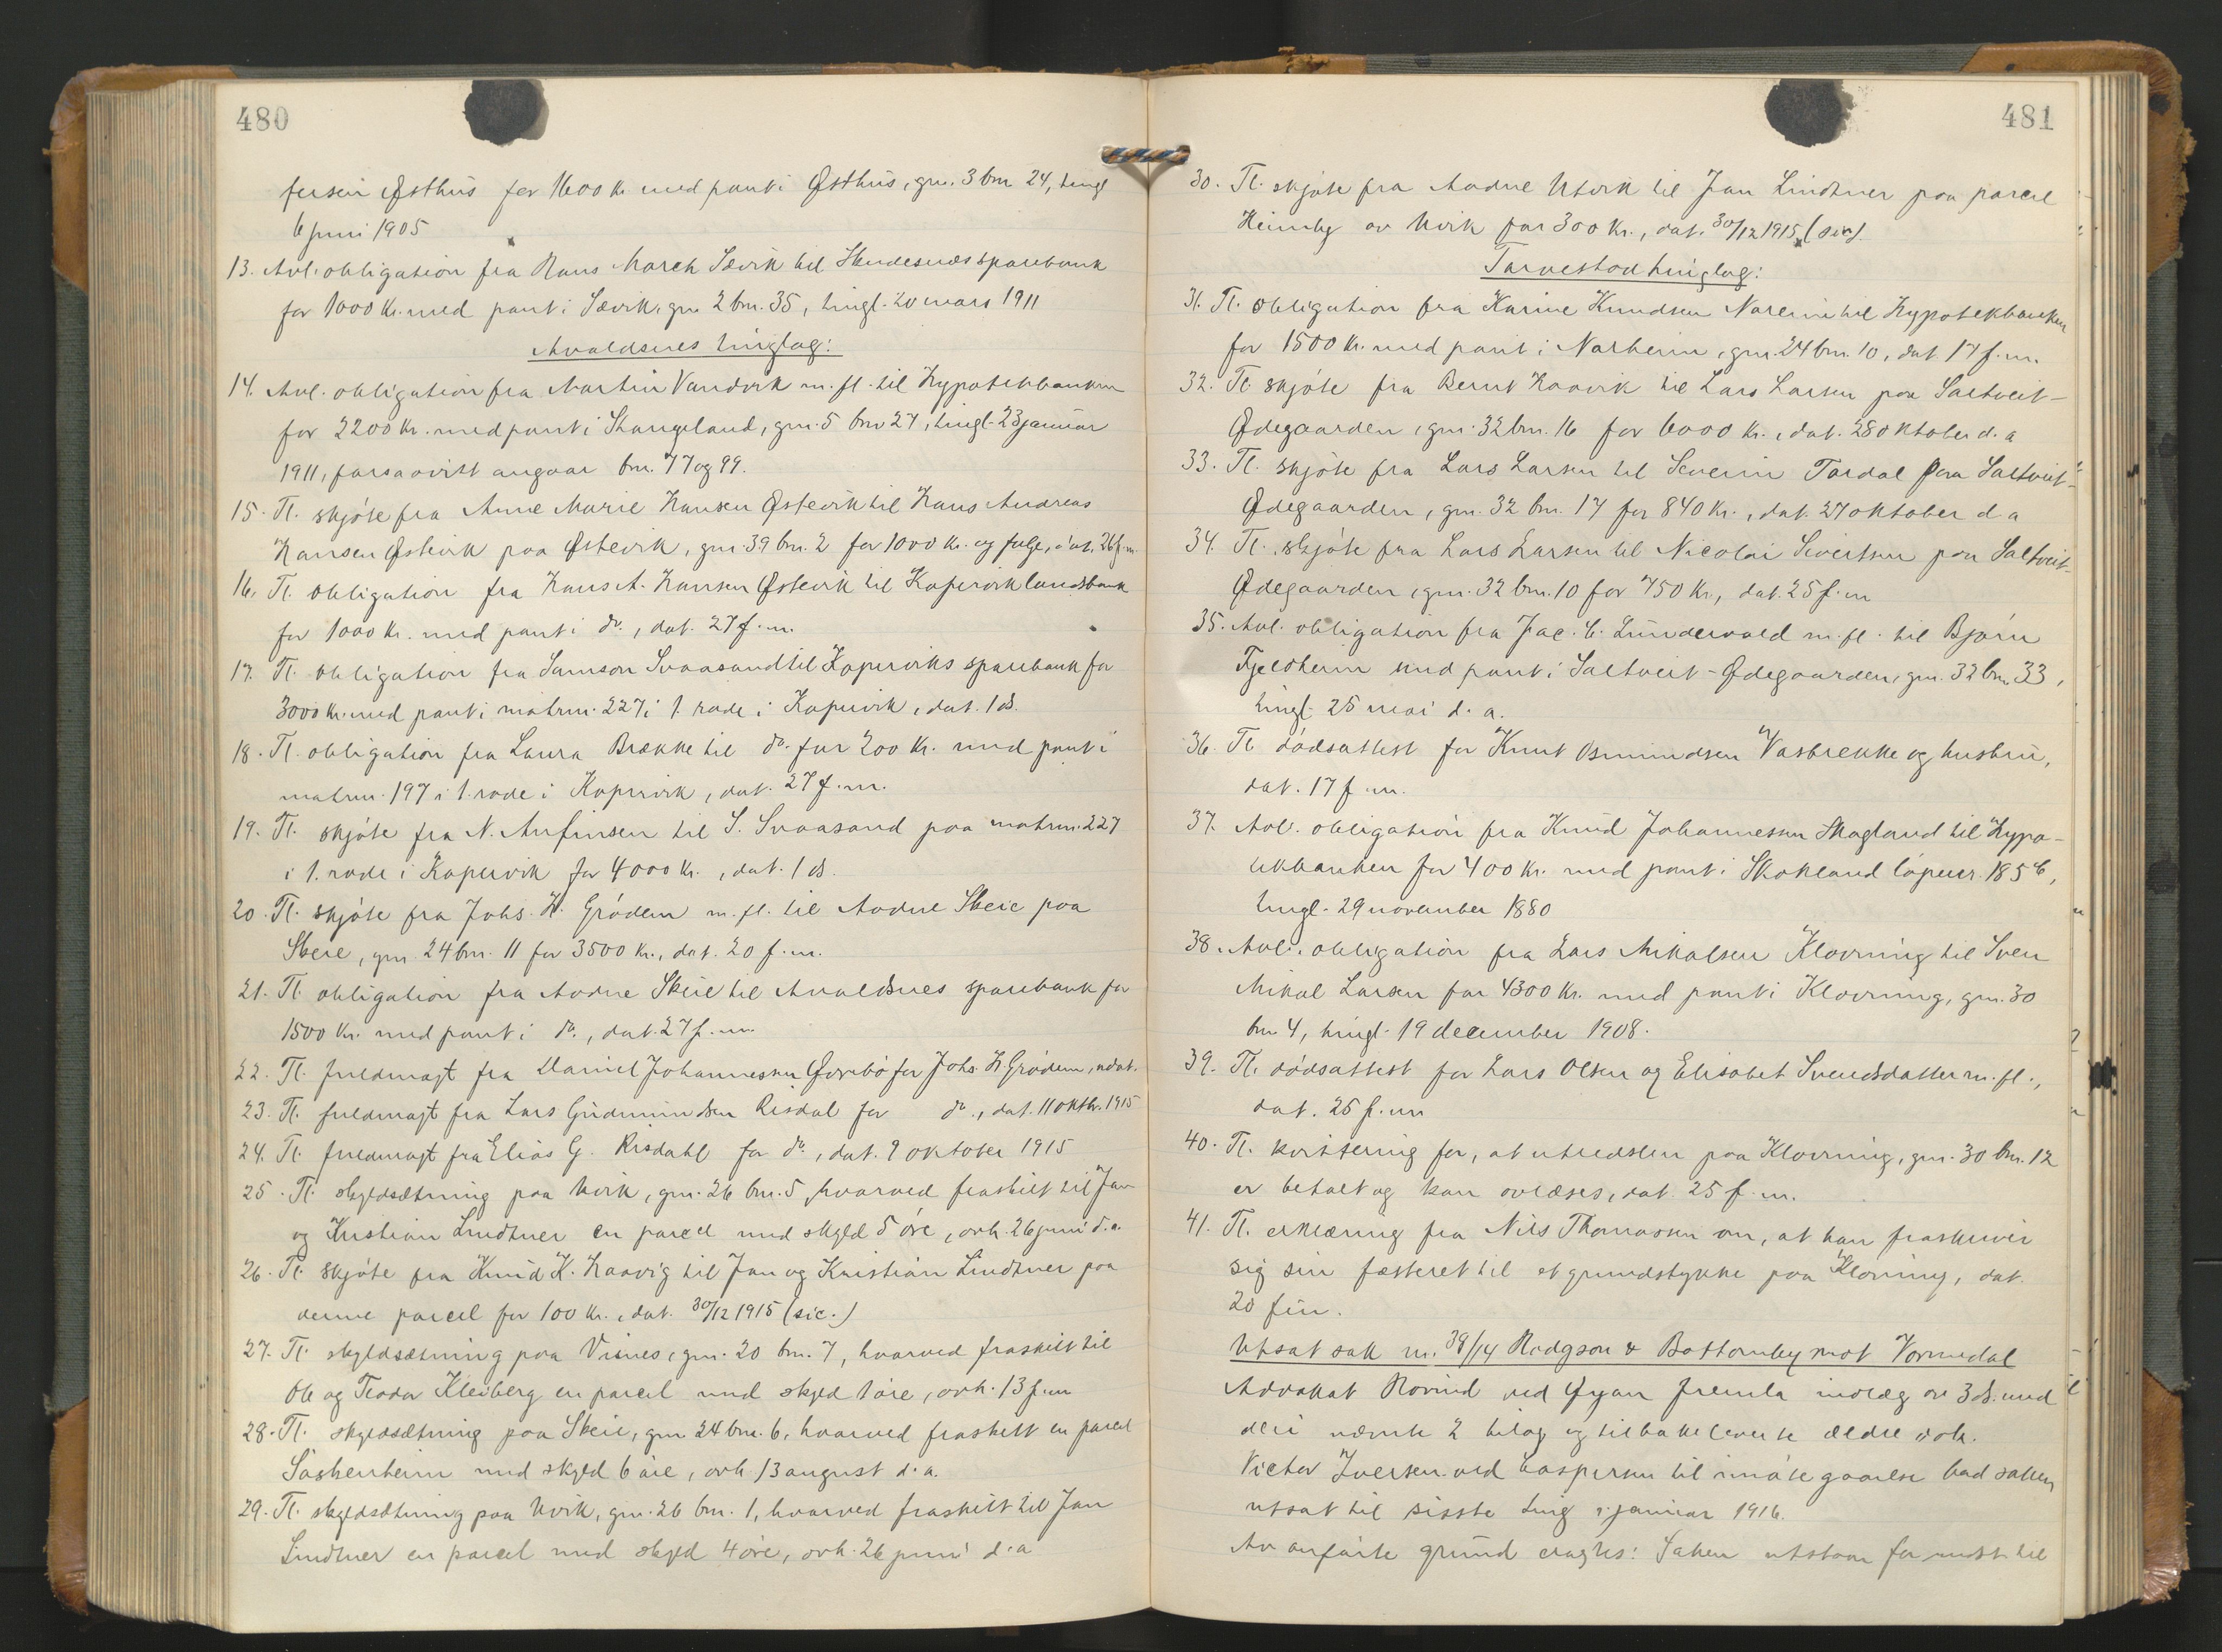 480
fersen Østhus for 1600 kr. med pant i Østhus, gnr. 3 bnr 24, tingl
6 juni 1905
13. Avl. obligation fra Hans March Sævik til Skudesnes sparebank
for 1000 Kr. med pant i Sævik, gnr 2 bnr. 35, tingl. 20 mars 1911
Avaldsnes tinglag:
14. Avl. obligation fra Martin Vandvik m. fl. til Hypotekbanken
for 2200 Kr. med pant i Stangeland, gnr. 5 bnr 27, tingl. 23 januar
1911, forsaavitt angaar bnr. 77 og 99.
15. Tl. skjøte fra Anne Marie Hansen Østevik til Hans Andreas
Hansen Østevik paa Østevik, gnr. 39 bnr. 2 for 1000 Kr. og følge, dat. 26 f. m.
16. Tl. obligation fra Hans A. Hansen Østevik til Kopervik landsbank
for 1000 Kr. med pant i do., dat. 27 f. m.
17. Tl. obligation fra Samson Svaasand til Koperviks sparebank for
3000 kr. med pant i matrnr. 227 i 1. rode i Kopervik, dat. 1 ds.
18. Tl. obligation fra Laura Brekke til do. for 200 Kr. med pant i
matrnr. 197 i 1. rode i Kopervik, dat. 27 f. m.
19. Tl. skjøte fra N. Anfinsen til S. Svaasand paa matrnr. 227
i 1. rode i Kopervik for 4000 Kr., dat. 1 ds.
20. Tl. skjøte fra Johs. H. Grödem m. fl. til Aadne Skeie paa
Skeie, gnr. 24 bnr. 11 for 3500 Kr., dat. 20 f. m.
21. Tl. obligation fra Aadne Skeie til Avaldsnes sparebank for
1500 Kr. med pant i do., dat. 27 f. m.
22. Tl. fuldmagt fra Daniel Johannessen Øvrebø for Johs. H. Grödem, udat.
23. Tl. fuldmagt fra Lars Gudmundsen Risdal for do., dat. 11 oktbr. 1915
24. Tl. fuldmagt fra Elias G. Risdahl for do., dat. 9 oktober 1915
25. Tl. skyldsætning paa Utvik, gnr. 26 bnr. 5, hvorved fraskilt til Jan
og Kristian Lindtner en parcel med skyld 5 öre, avh. 26 juni d. a.
26. Tl. skjøte fra Knud K. Haavig til Jan og Kristian Lindtner paa
denne parcel for 100 Kr., dat. 30/12 1915 (sic.)
27. Tl. skyldsætning paa Visnes, gnr. 20 bnr. 7, hvorved fraskilt til
Ole og Teodor Kleiberg en parcel med skyld 1 öre, avh. 13 f. m
28. Tl. skyldsætning paa Skeie, gnr 24 bnr. 6, hvorved fraskilt en parcel
med skyld 6 öre, avh 13 august d. a.
29. Tl. skyldsætning paa Utvik, gnr. 26 bnr. 1, hvorved fraskilt til Jan
Lindtner en parcel med skyld 4 öre, avh. 26 juni d. a
481
30. Tl. skjöte fra Aadne Utvik til Jan Lindtner paa parcel
Heimly av Utvik for 300 Kr., dat. 30/12 1915 (sic).
Torvestad tinglag:
31. Tl. obligation fra Karine Knudsen Noreim til Hypotekbanken
for 1500 Kr. med pant i Norheim, gnr. 24 bnr. 10, dat 17 f. m.
32. Tl. skjöte fra Bernt Haavik til Lars Larsen paa Saltveit-
Ødegaarden, gnr. 32 bnr. 16 for 6000 Kr., dat. 28 oktober d. a
33. Tl. skjöte fra Lars Larsen til Severin Tordal paa Saltveit-
Ødegaarden, gnr. 32 bnr. 17 for 840 Kr., dat. 27 oktober d a
34. Tl. skjöte fra Lars Larsen til Nicolai Sivertsen paa Saltveit-
Ødegaarden, gnr. 32 bnr. 10 for 750 Kr., dat. 25 f. m
35. Avl. obligation fra Jac. C. Lundewald m. fl. til Bjørn
Fjeldheim med pant i Saltveit-Ødegaarden, gnr. 32 bnr. 33,
tingl. 25 mai d. a.
36. Tl dödsattest for Knut Osmundsen Vasbrekke og hustru,
dat. 17 f. m.
37. Avl. obligation fra Knud Johannessen Skogland til Hypo-
tekbanken for 400 Kr. med pant i Skokland löpenr. 185 b,
tingl. 29 november 1880
38. Avl. obligation fra Lars Mikalsen Klovning til Sven
Mikal Larsen for 4300 Kr. med pant i Klovning, gnr. 30
bnr 4, tingl. 19 december 1908.
39. Tl. dödsattest for Lars Olsen og Elisabet Svendsdatter m. fl.,
dat. 25 f. m
40. Tl. kvittering for, at utredslen paa Klovning, gnr. 30 bnr. 12
er betalt og kan avlæses, dat. 25 f. m.
41. Tl. erklæring fra Nils Thomassen om, at han fraskriver
sig sin festeret til et grundstykke paa Klovning, dat.
20 f. m.
Utsat sak nr. 38/14 Hodgson & Bottomley mot Vormedal
Advokat Rovind ved Øyan fremla indlæg av 3 ds. med
deri nævnte 2 bilag og tilbakeleverte ældre dok.
Victor Iversen ved Caspersen til imötegaaelse bad saken
utsat til sisste ting i januar 1916.
Av anførte grund eragtes: Saken utstaar for mdst. til